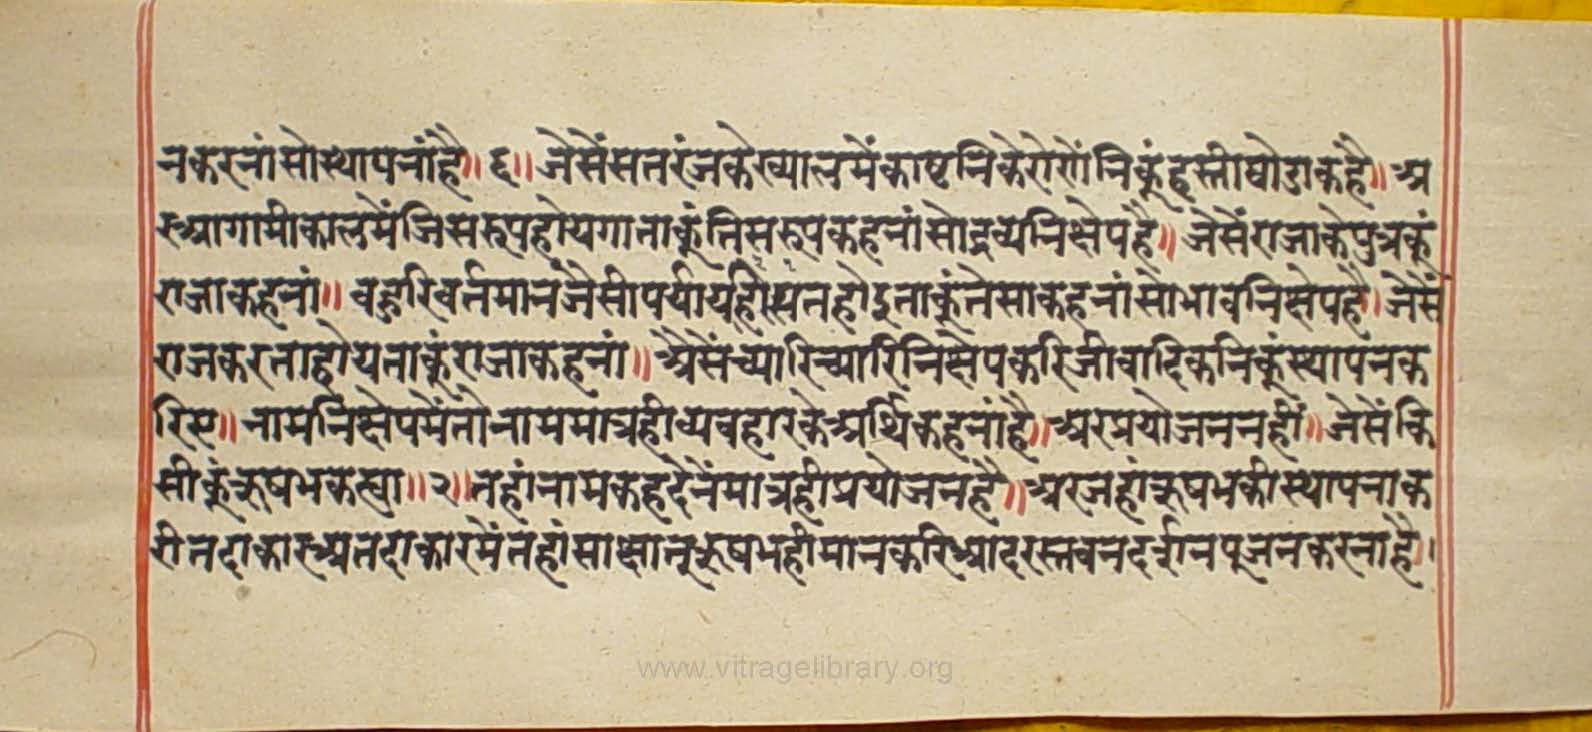 नकरनांसोस्थापनांहै॥६॥जेसेंसतरंजकेख्यालमेंकाष्टनिकेरोरोंनिकूंहस्तीघोडाकहै॥अ
रुआगामीकालमेंजिसरूपहोयगाताकूंतिसरूपकहनांसोद्रव्यनिक्षेपहै॥जेसेंराजाकेपुत्रकूं
राजाकहनां॥बहुरिवर्तमानजैसीपर्याय
राजकरताहोयताकूंराजाकहनां॥अैसेंच्यारिच्यारिनिक्षेपकरिजीवादिकनिकूंस्थापनक
रिए॥नामनिक्षेपमेंतौनाममात्रहीव्यवहारकेअर्थिकहनांहै॥अरप्रयोजननहीं॥जेसेंकि
सीकूंऋषभकह्या॥२॥तहांनामकहदेनेंमात्रहीप्रयोजनहै॥अरजहांऋषभकीस्थापनाक
रीतदाकारुअतदाकारमेंतहांसाक्षातऋषभहीमानकरिआदरस्तवनदर्शनपूजनकरनाहै।
www.vitragelibrary.org